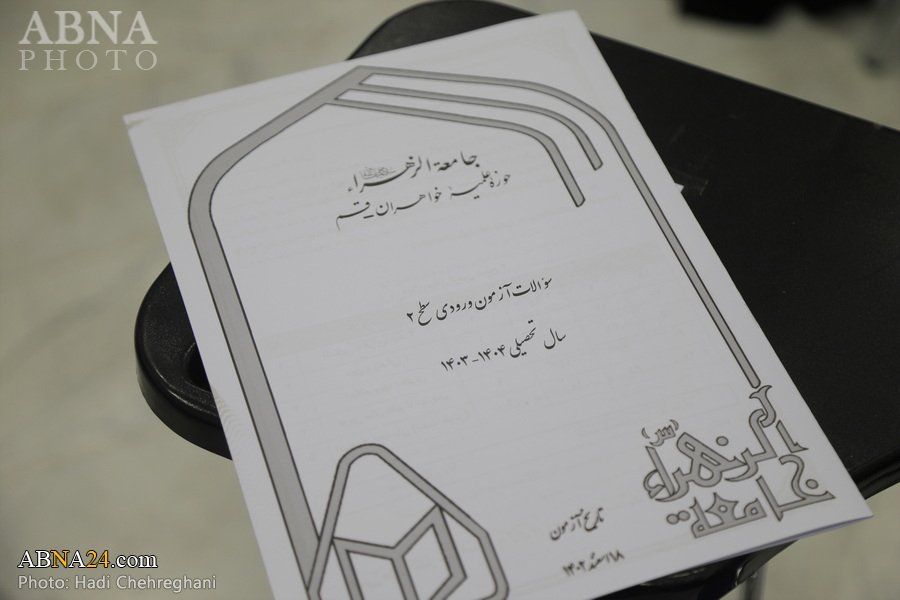 ABNA
PHOTO
جامعة الزهراء
حوزهٔ علمیهٔ خواهران_قم
سؤالات آزمون ورودی سطح ۲
سال تحصیلی ۱۴۰۴-۱۴۰۳
جامعة الزهراء (س)
تاریخ آزمون
۱۸ اسفند ۱۴۰۲
ABNA24.com
Photo: Hadi Chehreghani